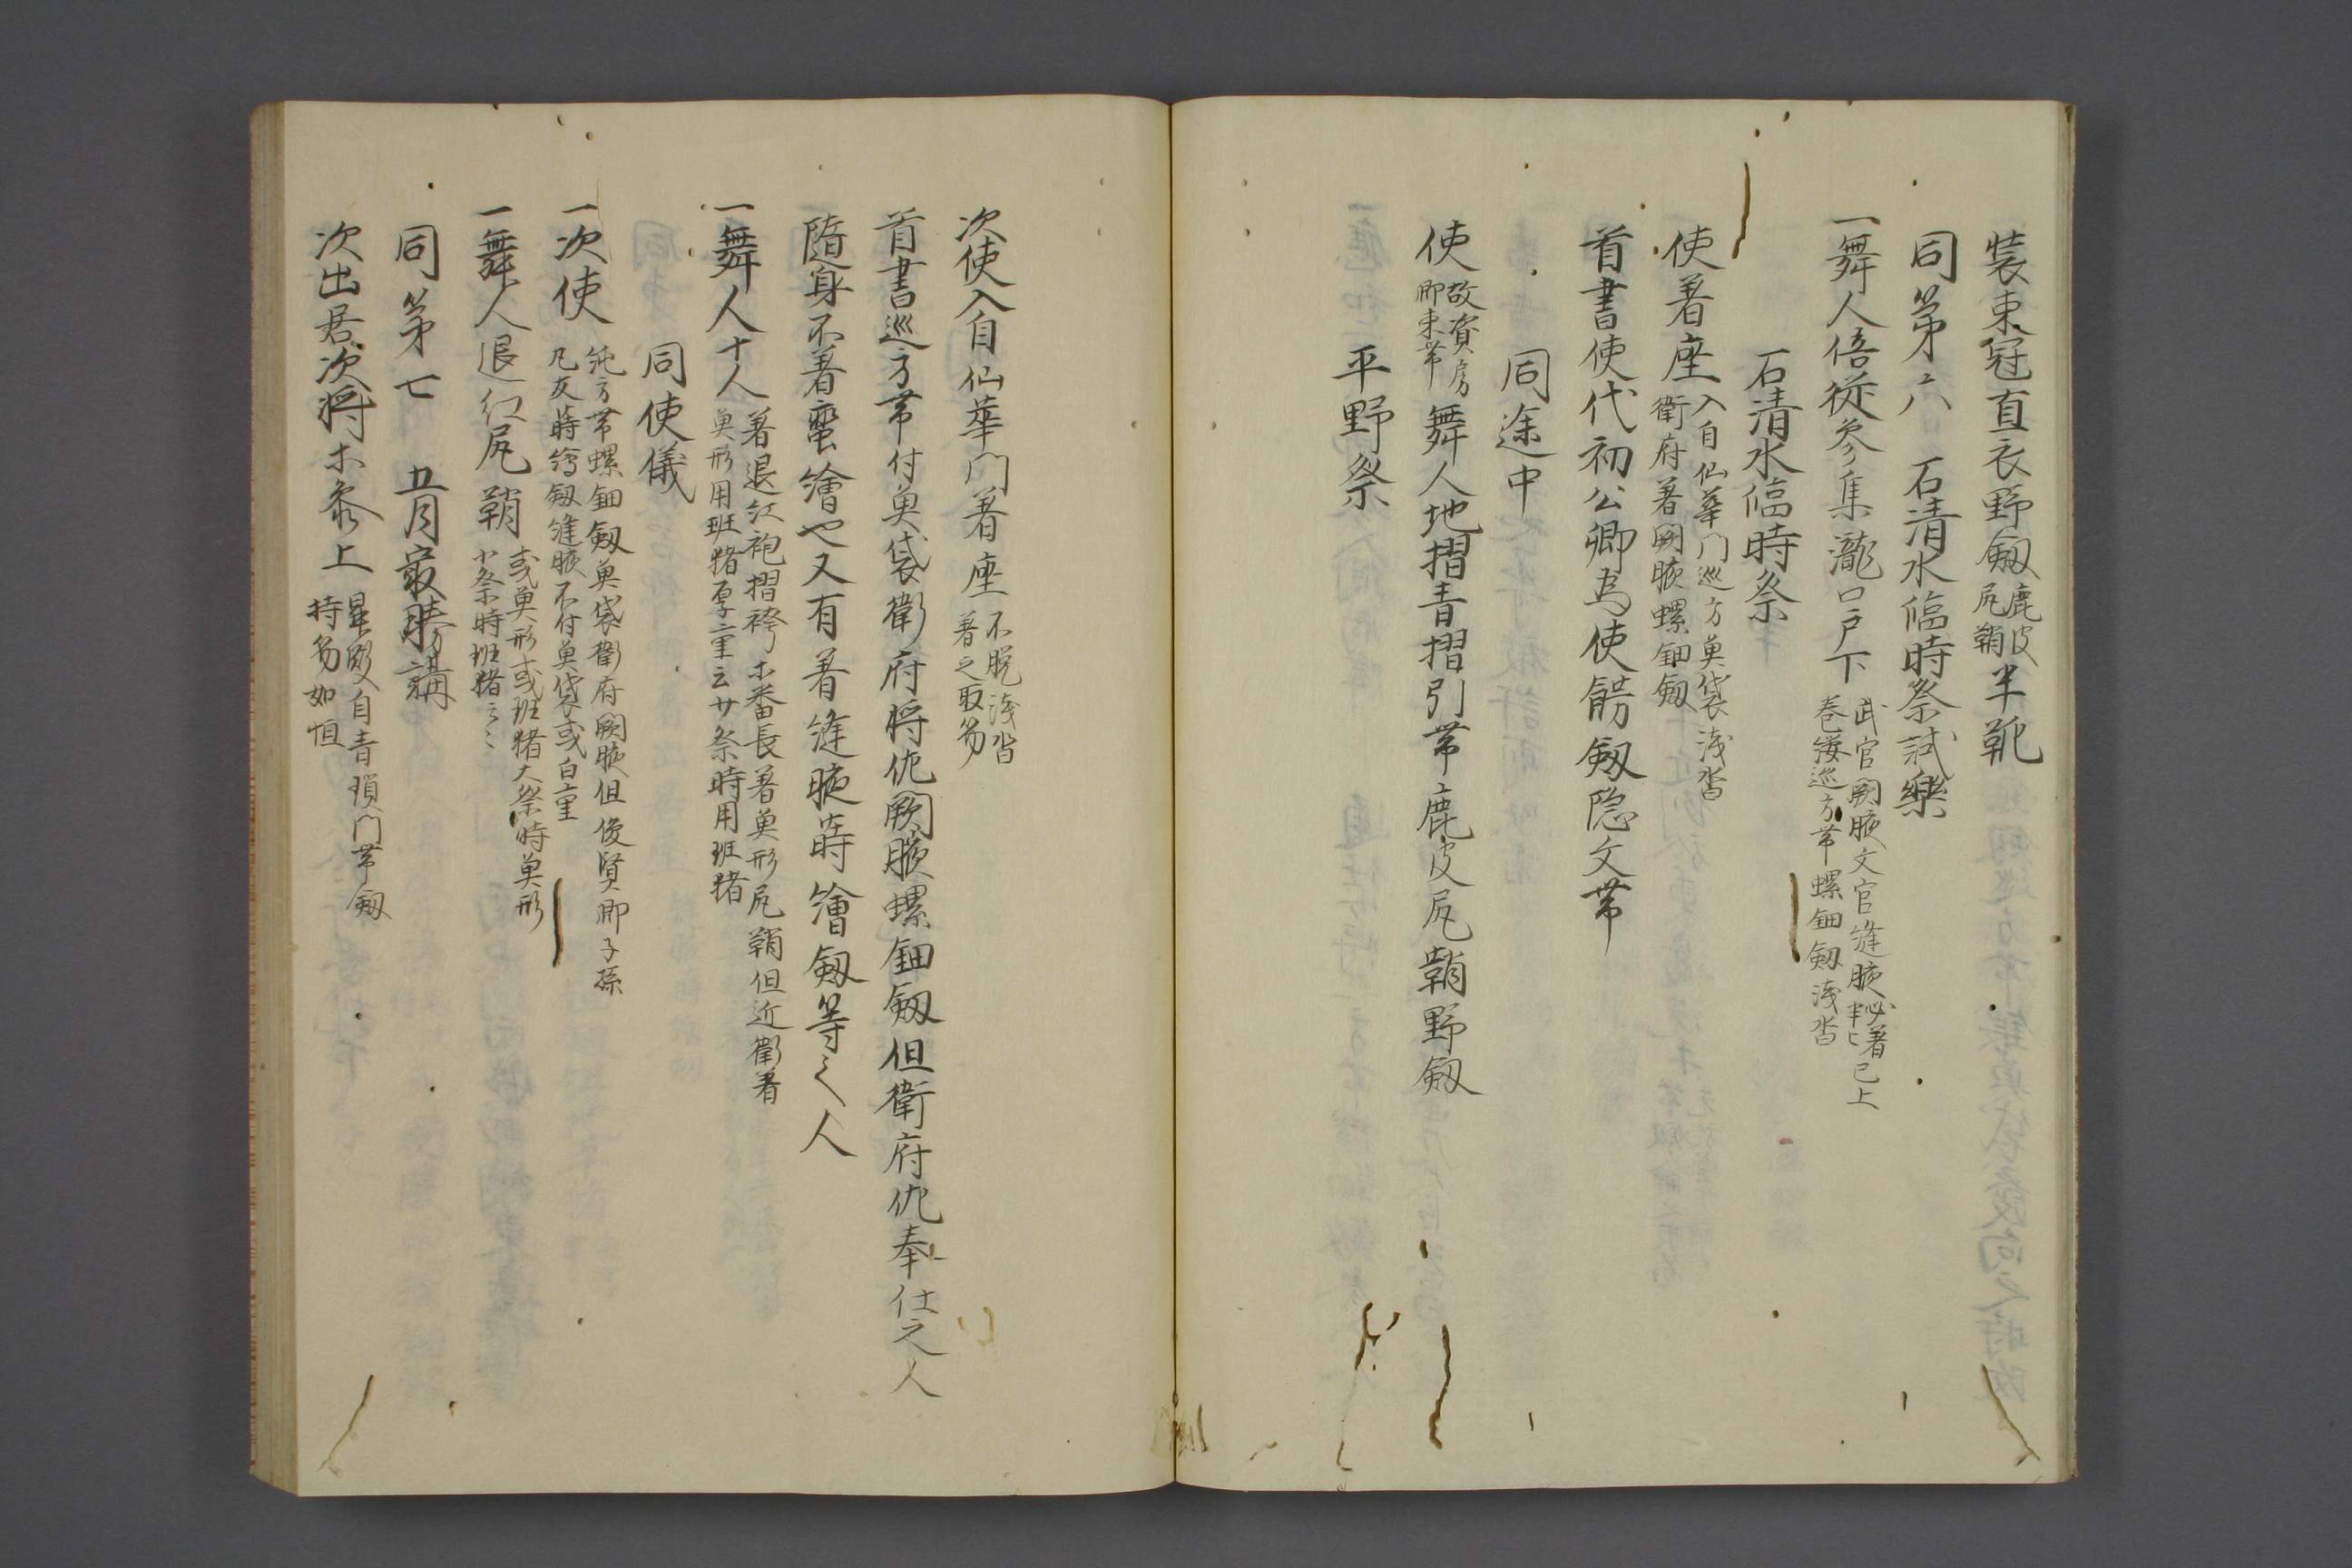 装束冠直衣野剱鹿皮尻鞘半靴
同第六 石清水臨時祭試樂
一舞人倍従参集瀧口戸下武官闕腋文官縫腋必著半已上
巻纓巡方帯螺鈿剱浅沓
石清水臨時祭
使著座入自仙華門巡方魚袋浅沓
衛府著闕腋螺鈿剱
首書使代初公卿為使餝剱隠文帯
同途中
使故資房卿束帯舞人地摺青摺引帯鹿皮尻鞘野剱
平野祭
次使入自仙華門著座不脱浅沓
著之取笏
首書巡方帯付魚袋衛府将佐闕腋螺鈿剱但衛府佐奉仕之人
随身不著蛮繪也又有著縫腋蒔繪剱等之人
一舞人十人著退紅袍摺袴木番長著魚形尻鞘但近衛着
魚形用斑猪原二童云廿祭時用斑猪
同使儀
一次使純方帯螺鈿剱魚袋衛府闕腋但俊賢卿子孫
凡友蒔繪剱縫腋不付魚袋或白童
一舞人退紅尻鞘或魚形或斑猪大祭時魚形
小祭時斑猪云々
同第七 五月最勝講
次出居次将木参上昇殿自青瑣門帯剱
持笏如恒